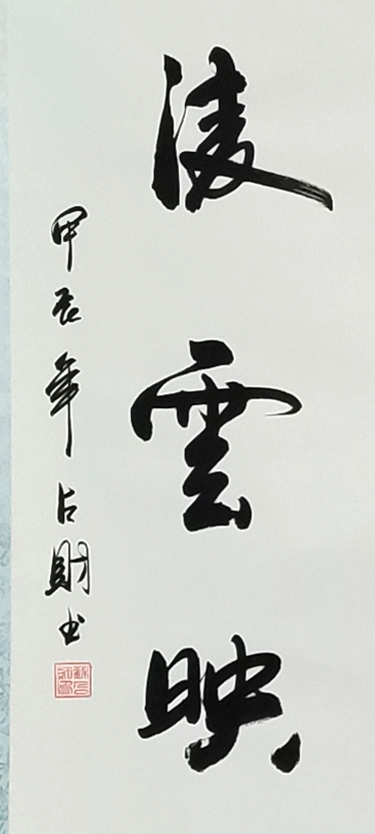 凌雲映
甲辰年占財书